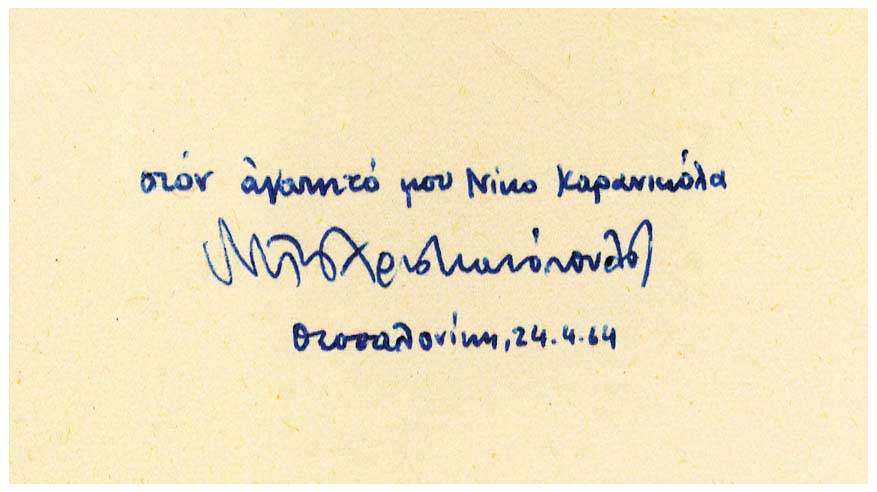 στόν ἀγαπητό μου Νίκο Καρανικόλα
Ντίνος Χριστιανόπουλος
Θεσσαλονίκη, 24.4.64